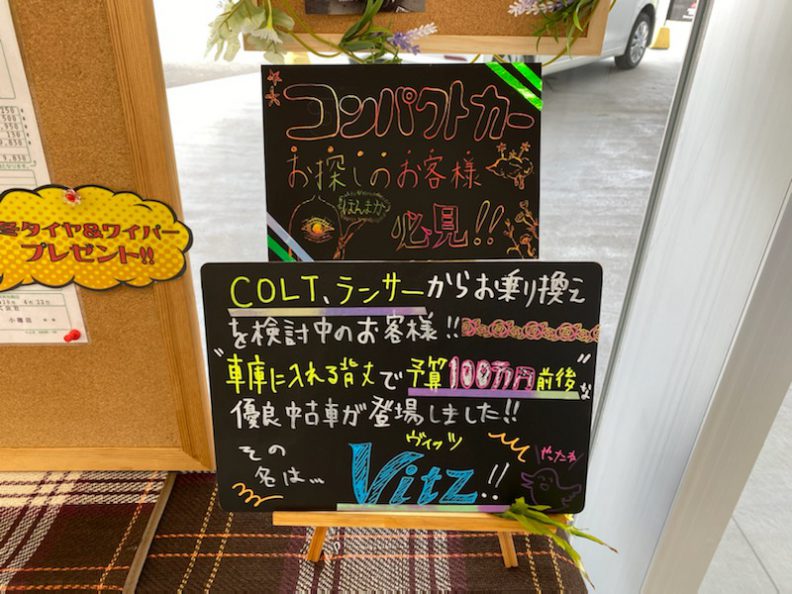 コンパクトカー
お探しのお客様
ほんまか
必見!!
冬タイヤ&ワイパー
プレゼント!!
COLT、ランサーからお乗り換え
を検討中のお客様!!
"車庫に入れる背丈で予算100万円前後"な
優良中古車が登場しました!!
その
名は…
ヴィッツ
Vitz!!
やったね